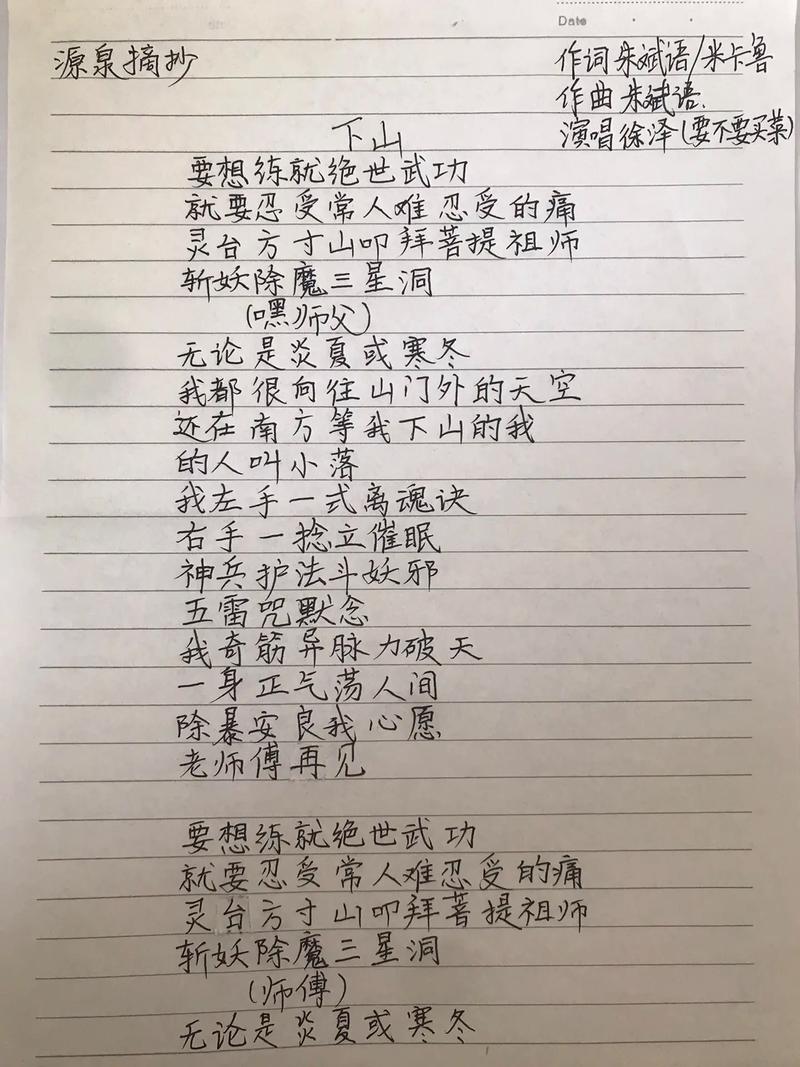 Date
源泉摘抄
作词朱斌语/米卡鲁
作曲朱斌语.
演唱徐泽(要不要买菜)
下山
要想练就绝世武功
就要忍受常人难忍受的痛
灵台方寸山叩拜菩提祖师
斩妖除魔三星洞
(嘿师父)
无论是炎夏或寒冬
我都很向往山门外的天空
还在南方等我下山的我
的人叫小落
我左手一式离魂诀
右手一捻立催眠
神兵护法斗妖邪
五雷咒默念
我奇筋异脉力破天
一身正气荡人间
除暴安良我心愿
老师傅再见
要想练就绝世武功
就要忍受常人难忍受的痛
灵台方寸山叩拜菩提祖师
斩妖除魔三星洞
(师傅)
无论是炎夏或寒冬